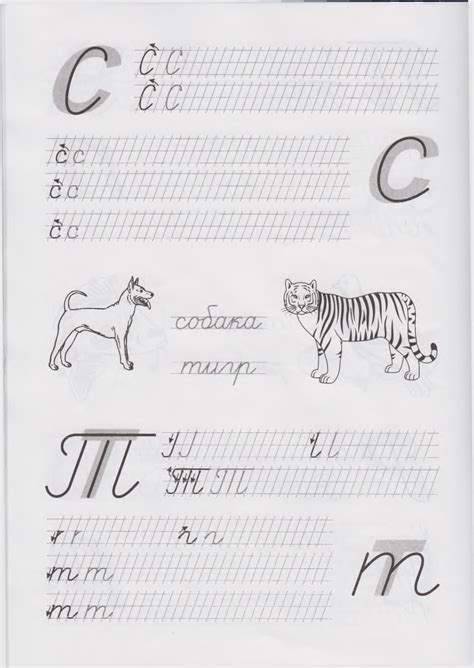 С С С
С С
с с с
с с
с с
собака
тигр
Т Т Т
т
т т
т т